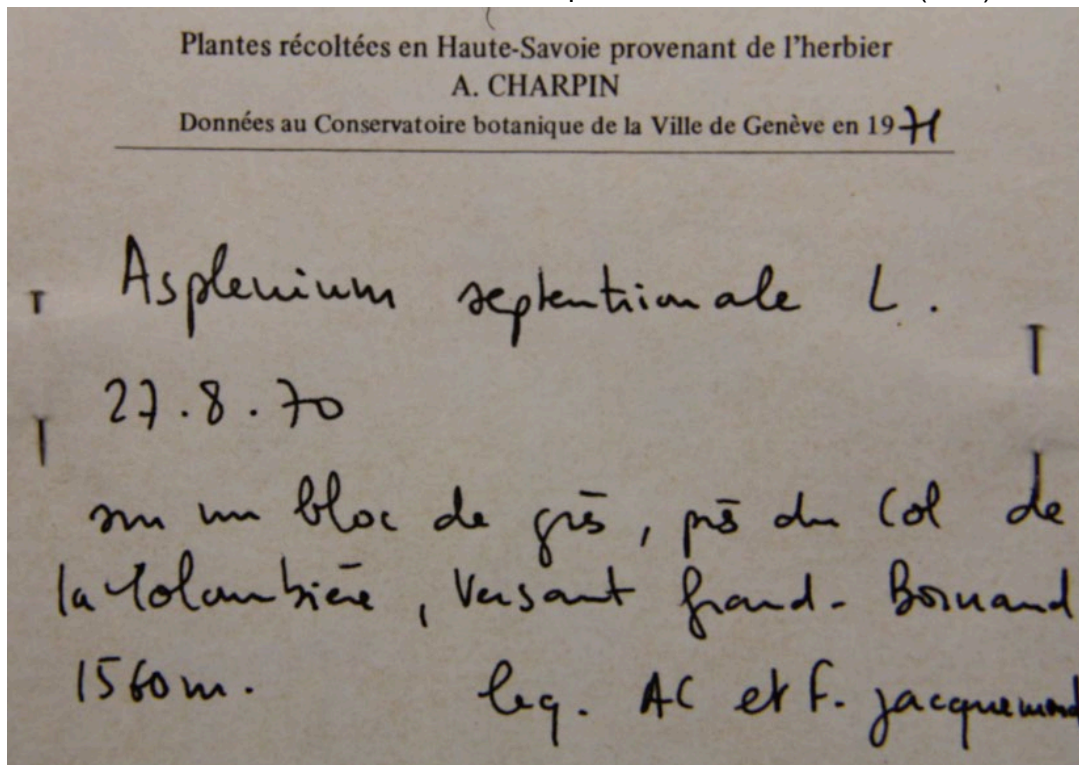 Plantes récoltées en Haute-Savoie provenant de l'herbier
A. CHARPIN
Données au Conservatoire botanique de la Ville de Genève en 1971
Asplenium septentrionale L.
27.8.70
sur un bloc de grès, près du Col de
la Colombière, Versant Grand-Bornand
1560m. leg. AC et F. Jacquemoud